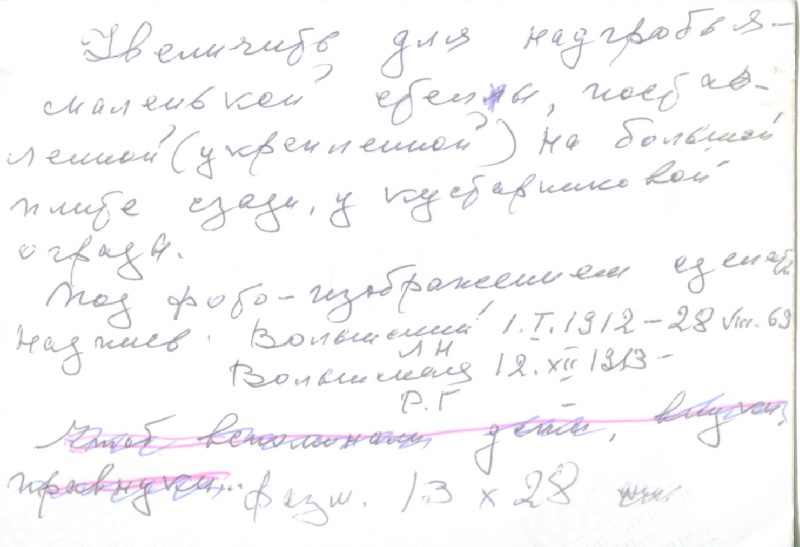 Увеличить для надгробья –
маленькой стеллы, постав-
ленной (укрепленной) на большой
плите сзади, у кустарниковой
ограды.
Под фото-изображением сделать
надпись. Волынский 1.I.1912 – 28 VIII. 69
ЛН
Волынская 12. XII 1913 –
Р.Г –
Чтоб вспоминали дети, внуки,
правнуки... разм. 13 х 28